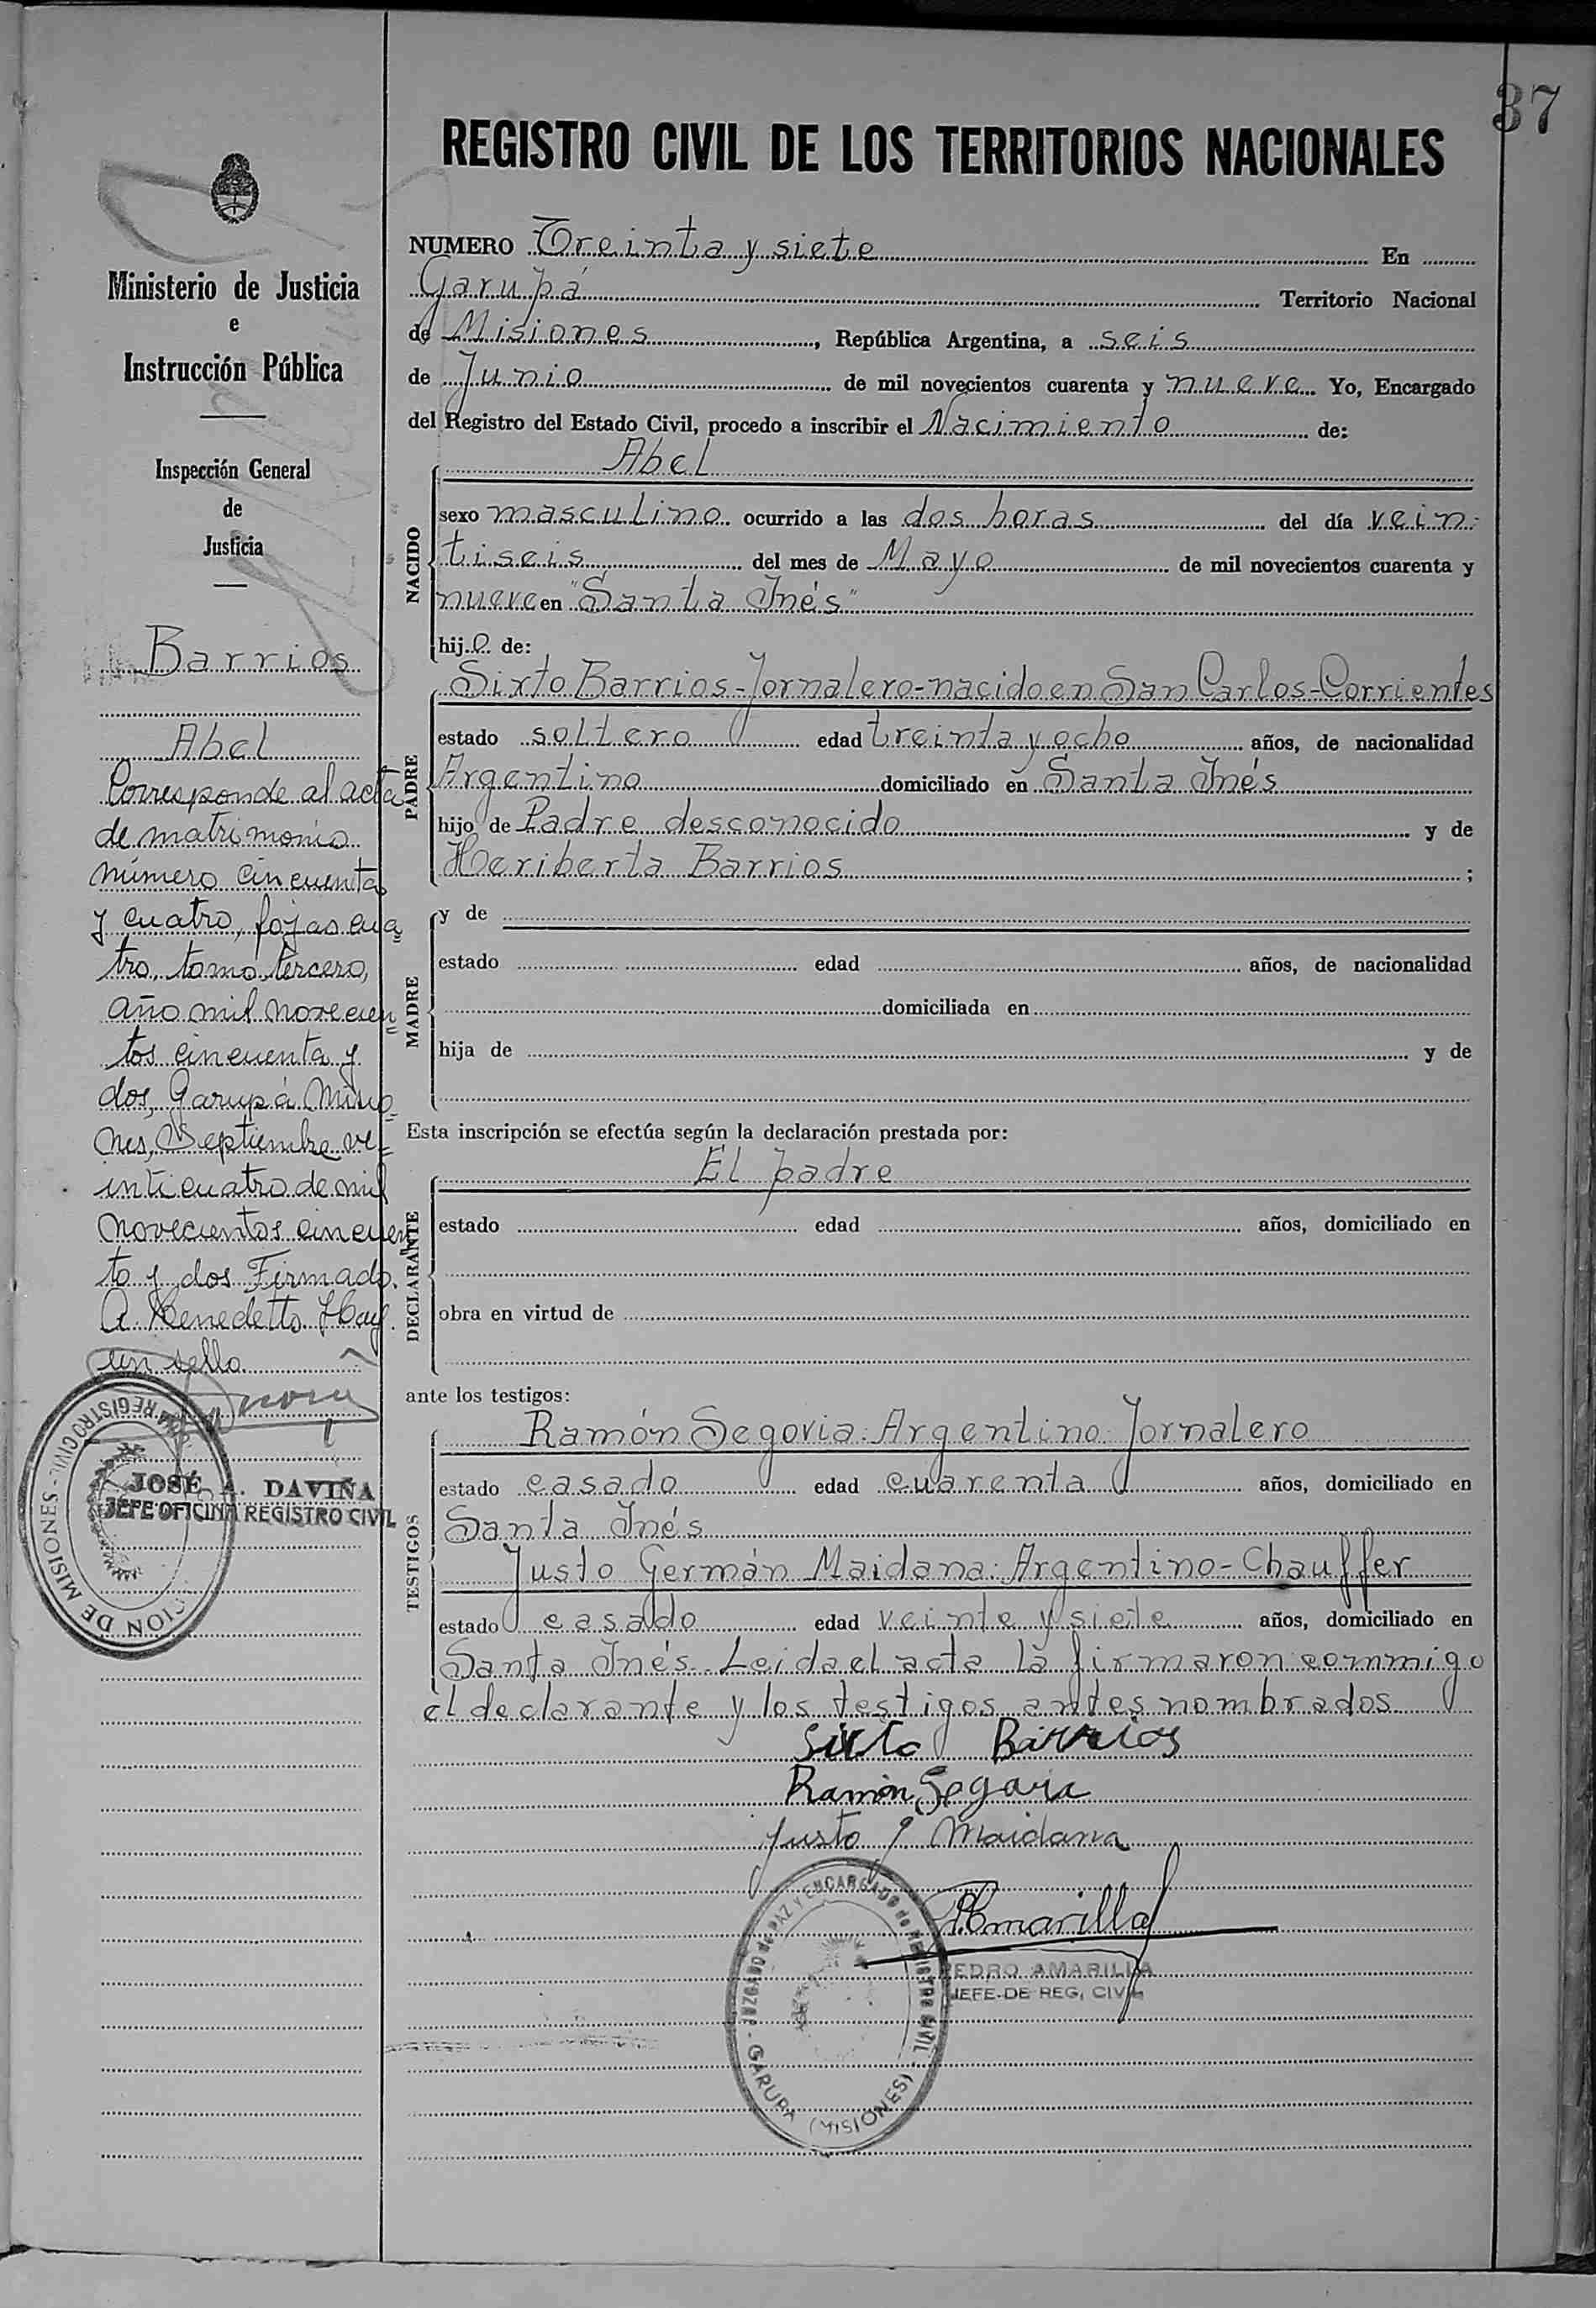 37
REGISTRO CIVIL DE LOS TERRITORIOS NACIONALES
Ministerio de Justicia
e
Instrucción Pública
Inspección General
de
Justicia
Barrios
Abel
Corresponde al acta
de matrimonio
número cincuenta
y cuatro, fojas cua
tro, tomo tercero,
año mil novecien
tos cincuenta y
dos, Garupá Misio
nes, Septiembre ve
inticuatro de mil
novecientos cincuen
ta y dos Firmado.
A. Benedetto. Hay
un sello
REGISTRO CIVIL - MISIONES
JOSÉ A. DAVIÑA
JEFE OFICINA REGISTRO CIVIL
NUMERO Treinta y siete En
Garupá Territorio Nacional
de Misiones, República Argentina, a seis
de Junio de mil novecientos cuarenta y nueve. Yo, Encargado
del Registro del Estado Civil, procedo a inscribir el Nacimiento de:
NACIDO
Abel
sexo masculino ocurrido a las dos horas del día vein-
tiseis del mes de Mayo de mil novecientos cuarenta y
nueve en "Santa Inés"
hijo de:
PADRE
Sixto Barrios-Jornalero-nacido en San Carlos-Corrientes
estado soltero edad treinta y ocho años, de nacionalidad
Argentino domiciliado en Santa Inés
hijo de Padre desconocido y de
Heriberta Barrios ;
MADRE
y de
estado edad años, de nacionalidad
domiciliada en
hija de y de
Esta inscripción se efectúa según la declaración prestada por:
DECLARANTE
El padre
estado edad años, domiciliado en
obra en virtud de
ante los testigos:
TESTIGOS
Ramón Segovia. Argentino. Jornalero
estado casado edad cuarenta años, domiciliado en
Santa Inés
Justo Germán Maidana. Argentino-Chauffer
estado casado edad veinte y siete años, domiciliado en
Santa Inés. Leida el acta la firmaron conmmigo
el declarante y los testigos antes nombrados.
Sixto Barrios
Ramón Segovia
Justo G Maidana
P. Amarilla
PEDRO AMARILLA
JEFE-DE REG, CIVIL
JUZGADO de PAZ y ENCARGADO de REGISTRO CIVIL - GARUPA (MISIONES)